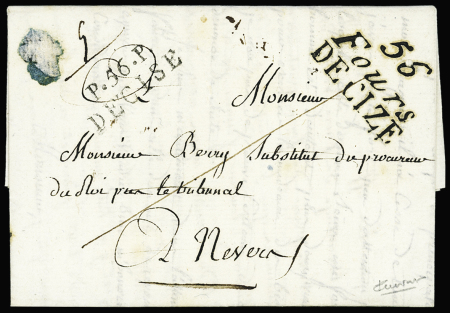 5
P.56.P
DECISE
56
Fours
DECIZE
Monsieur
Monsieur Berry Substitut du procureur
du Roi près le tribunal
à Nevers